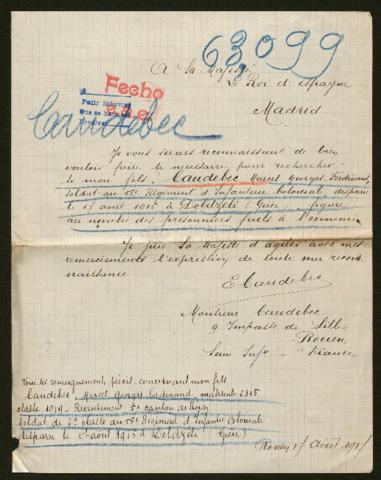 63,099
A Sa Majesté
le Roi d'Espagne
Madrid
Fecho
Caudebec
Je vous serais reconnaissant de bien
vouloir faire le nécessaire pour rechercher
mon fils, Caudebec Marcel Georges Ferdinand,
soldat au 55e Régiment d'Infanterie Coloniale disparu
le août 1915 à
au nombre des prisonniers faits à l'ennemi
Je prie Sa Majesté d'agréer avec mes
remerciements l'expression de toute ma recon
naissance
E Caudebec
Monsieur Caudebec
9 Impasse de
Rouen
Seine Infre France
renseignements précis concernant mon fils
Caudebec Marcel Georges Ferdinand matricule 2815
classe 1914 - Recrutement 5e canton de Rouen
Soldat de 2e classe au 55e Régiment d'Infanterie Coloniale
disparu le août 1915 à
Rouen Août